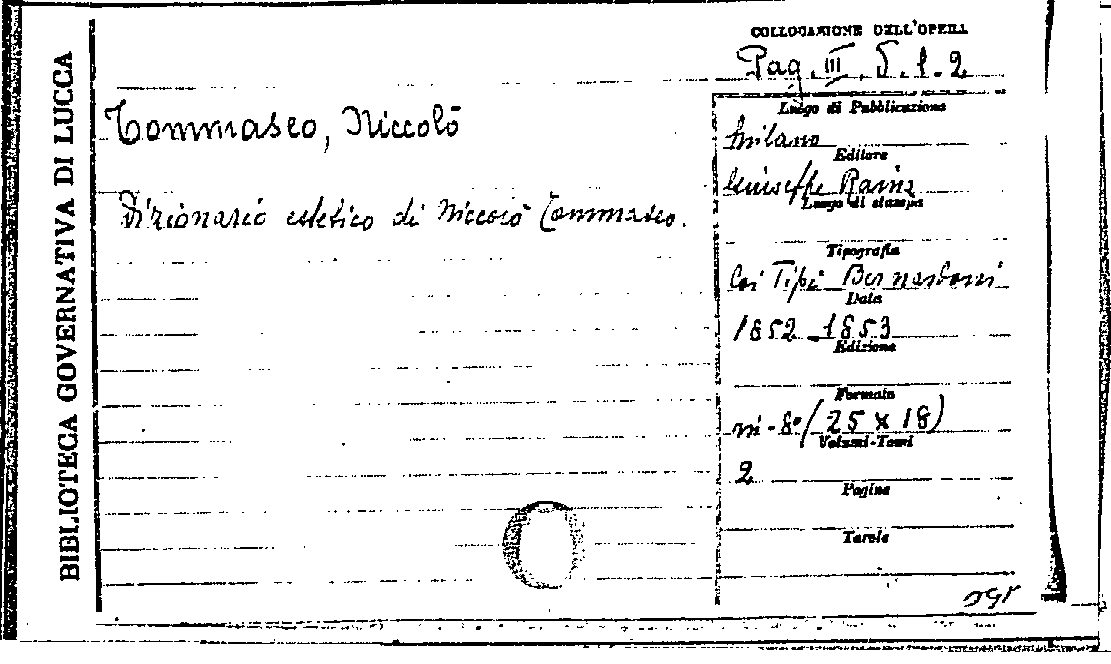 BIBLIOTECA GOVERNATIVA DI LUCCA
COLLOCAZIONE DELL'OPERA
Pag. III. D. 1. 2
Tommaseo, Niccolò
Dizionario estetico di Niccolò Tommaseo.
Luogo di Pubblicazione
Milano
Editore
Giuseppe Reina
Luogo di stampa
Tipografia
Coi Tipi Bernardoni
Data
1852-1853
Edizione
Formato
in-8º (25 x 18)
Volumi-Tomi
2
Pagine
Tavole